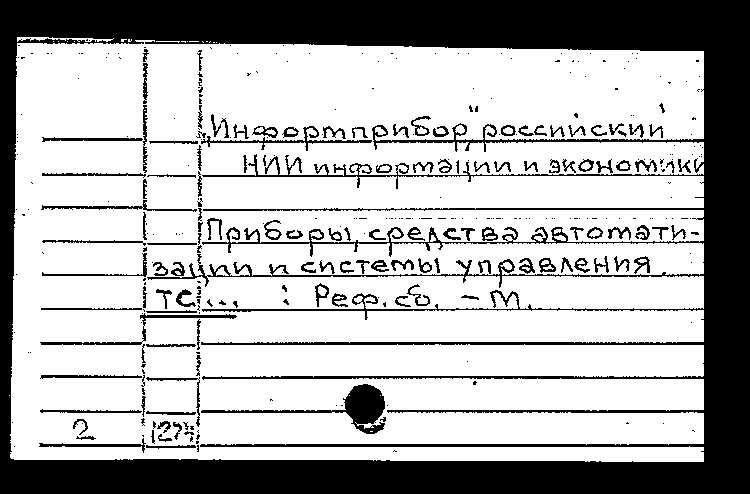 „Информприбор" российский
НИИ информации и экономики
Приборы, средства автомати-
зации и системы управления.
ТС... : Реф. сб. - М.
2